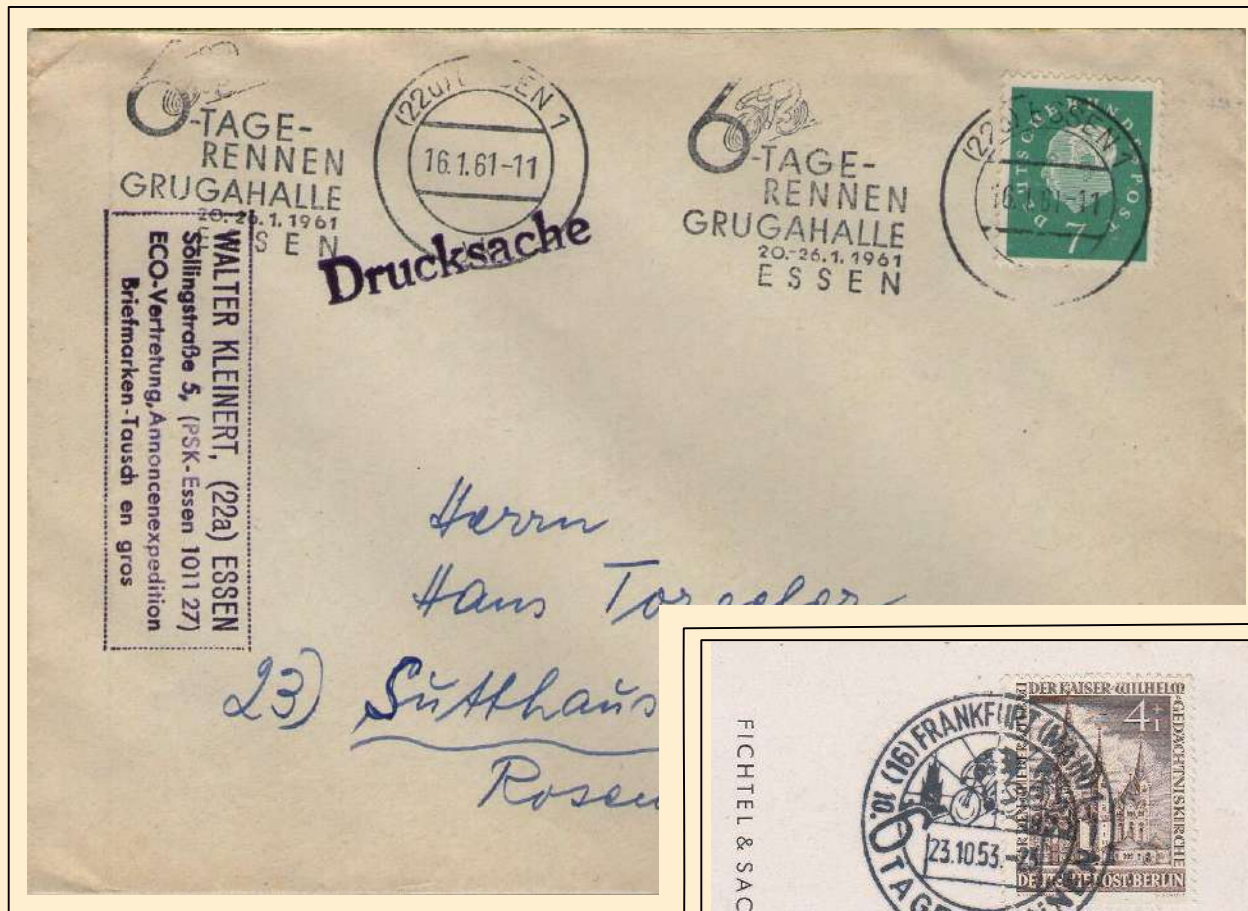 6-TAGE-
RENNEN
GRUGAHALLE
20.-26.1.1961
ESSEN
16.1.61-11
6-TAGE-
RENNEN
GRUGAHALLE
20.-26.1.1961
ESSEN
(22a) ESSEN 1
16.1.61-11
DEUTSCHE BUNDESPOST
7
Drucksache
WALTER KLEINERT, (22a) ESSEN
Söllingstraße 5, (PSK-Essen 1011 27)
ECO-Vertretung, Annoncenexpedition
Briefmarken-Tausch en gros
Herrn
Hans
23) Sutthaus
Rosen
FICHTEL & SAC
10. (16) FRANKFURT (MAIN) 1
23.10.53.-23
6 TAGE
DER KAISER-WILHELM-GEDÄCHTNISKIRCHE
4+1
DEUTSCHE POST BERLIN